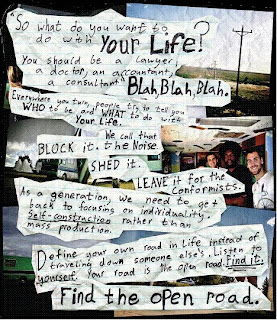 "So what do you want to
do with Your Life?
You should be a lawyer,
a doctor, an accountant,
a consultant Blah, Blah, Blah.
Everywhere you turn, people try to tell you
WHO to be and WHAT to do with
Your Life.
We call that
the Noise.
BLOCK it.
SHED it.
LEAVE it for the
Conformists.
As a generation, we need to get
back to focusing on individuality.
Self-construction rather than
mass production.
Define your own road in Life instead of
traveling down someone else's. Listen to
yourself. Your road is the open road. Find it.
Find the open road.